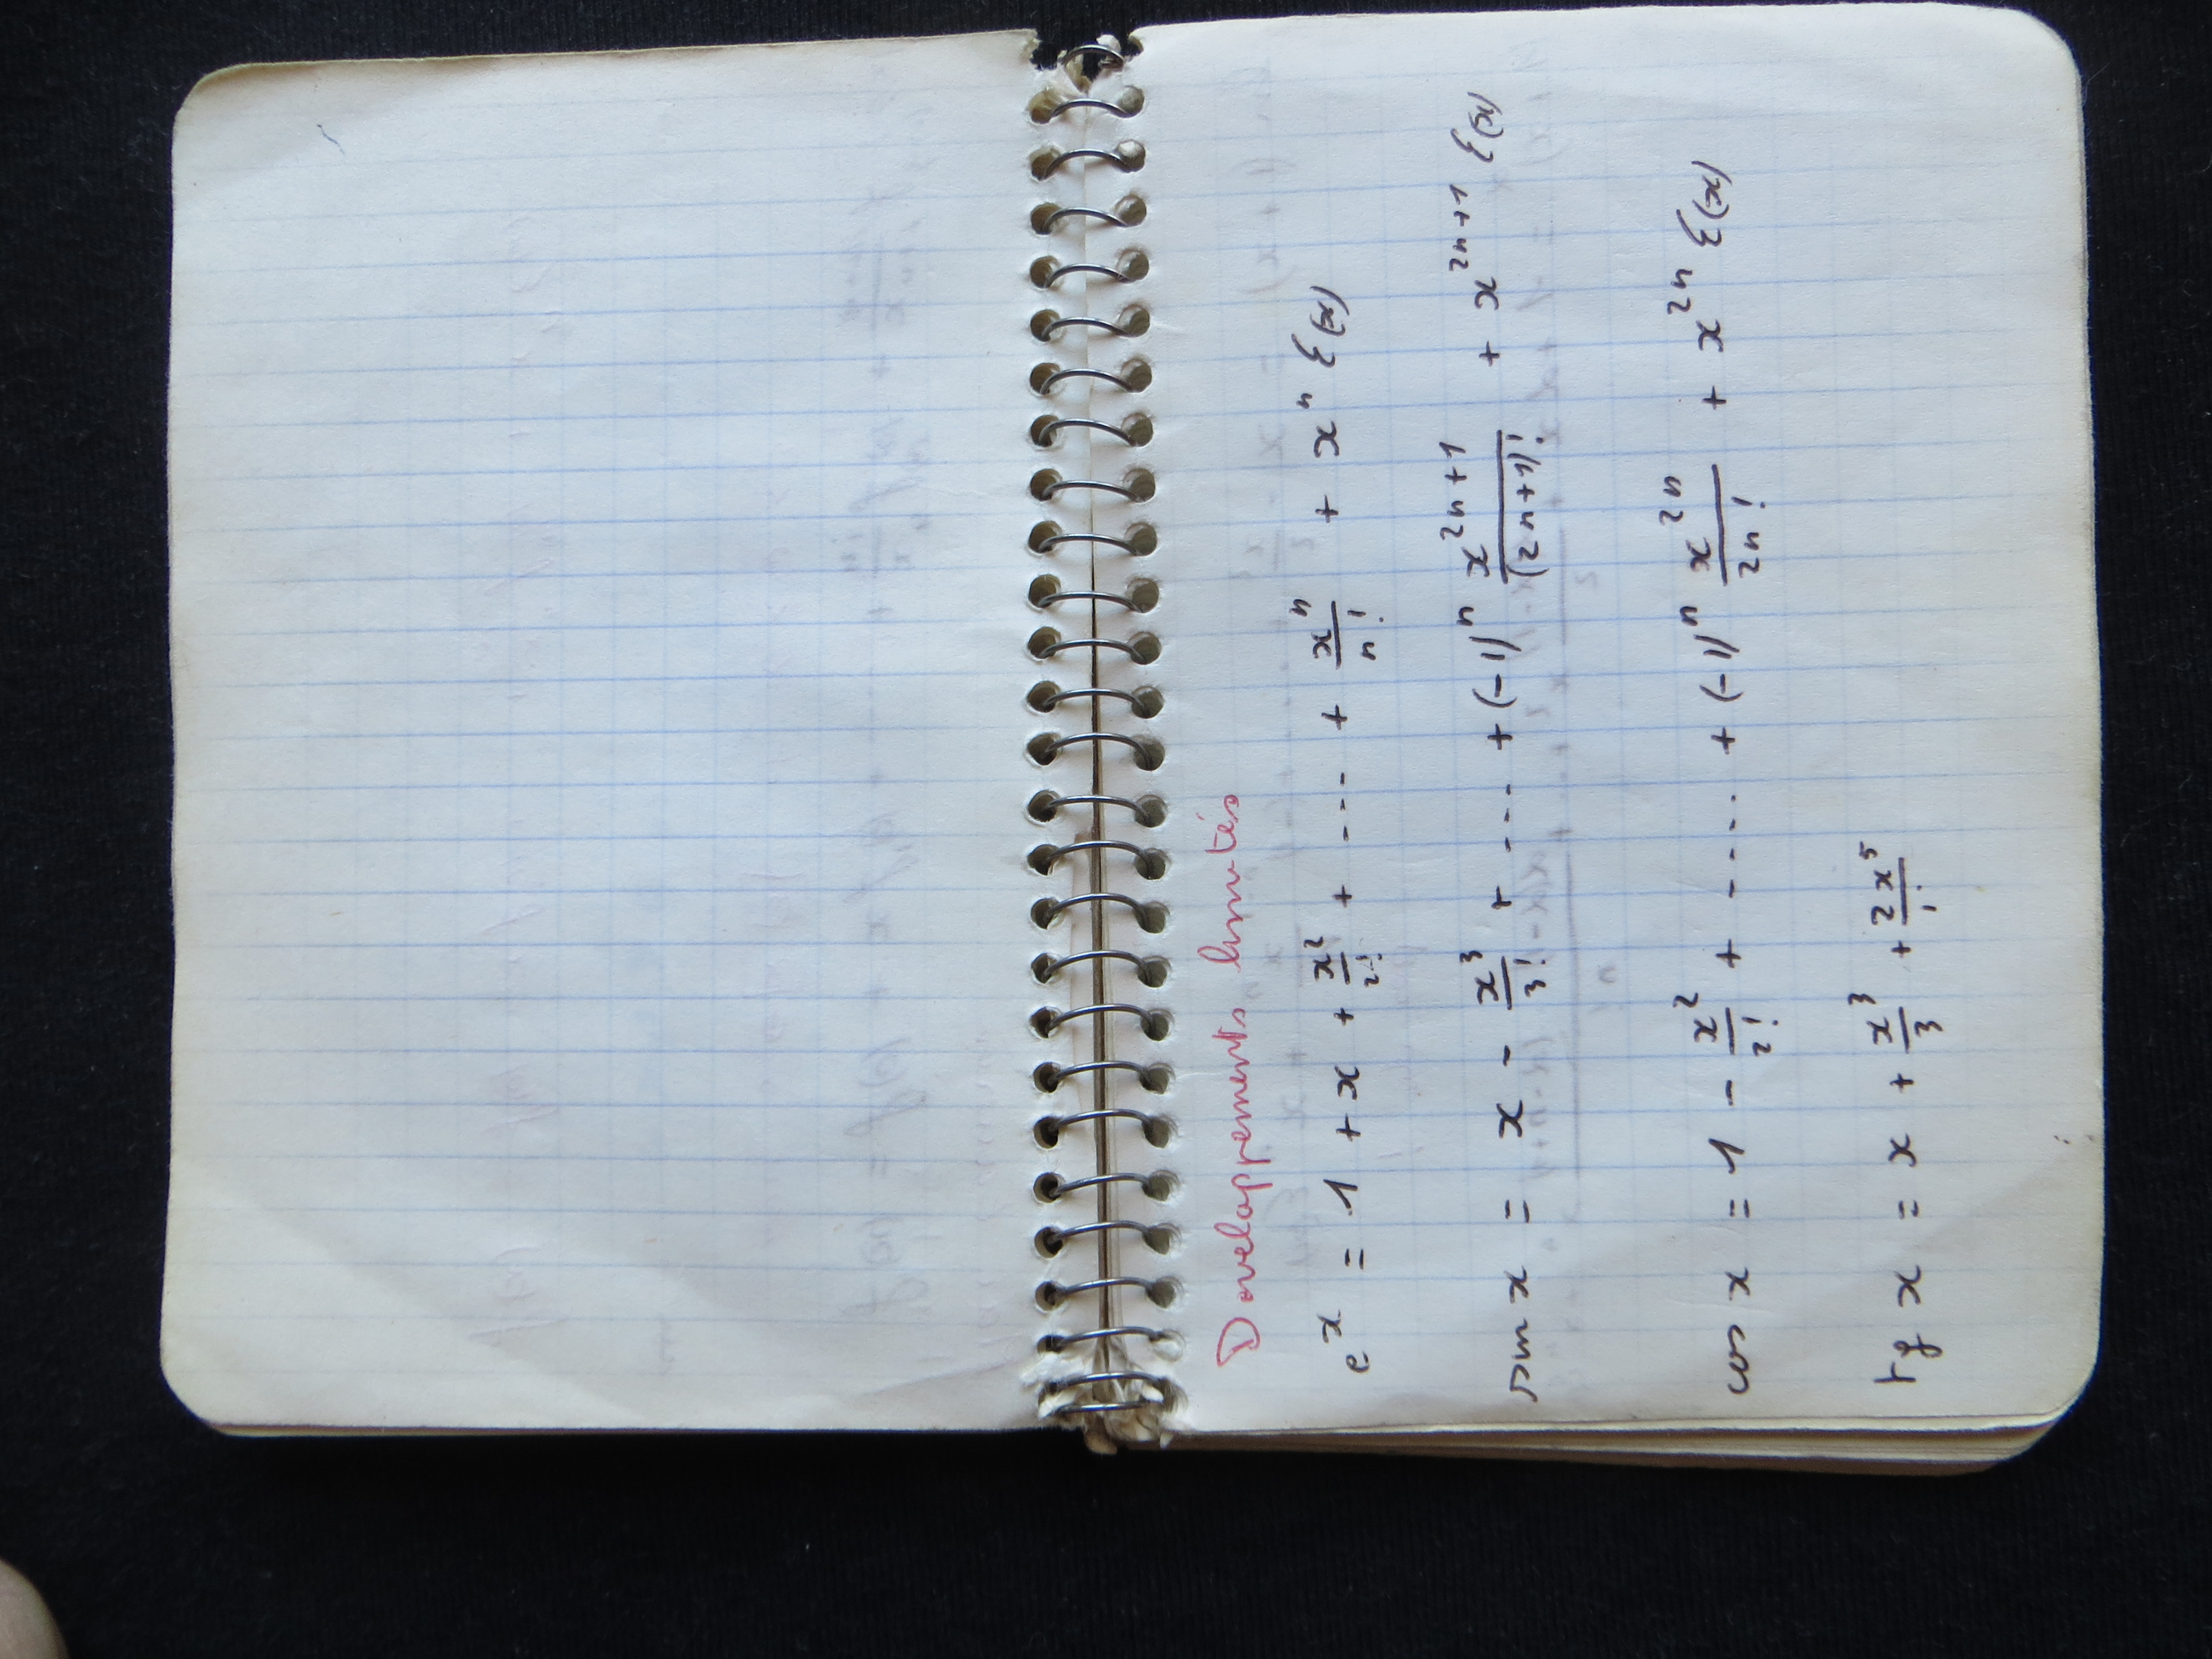 Developpements limités
e^x = 1 + x + x²/2! + ---- + x^n/n! + x^n ξ(x)
sin x = x - x³/3! + ---- + (-1)^n x^(2n+1)/(2n+1)! + x^(2n+1) ξ(x)
cos x = 1 - x²/2! + ----- + (-1)^n x^(2n)/2n! + x^(2n) ξ(x)
tg x = x + x³/3 + 2x⁵/